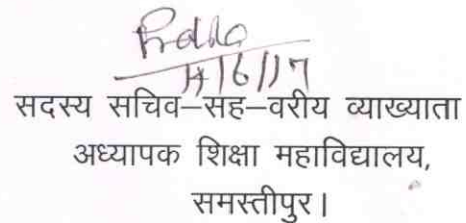 14/6/17
सदस्य सचिव–सह–वरीय व्याख्याता
अध्यापक शिक्षा महाविद्यालय,
समस्तीपुर।